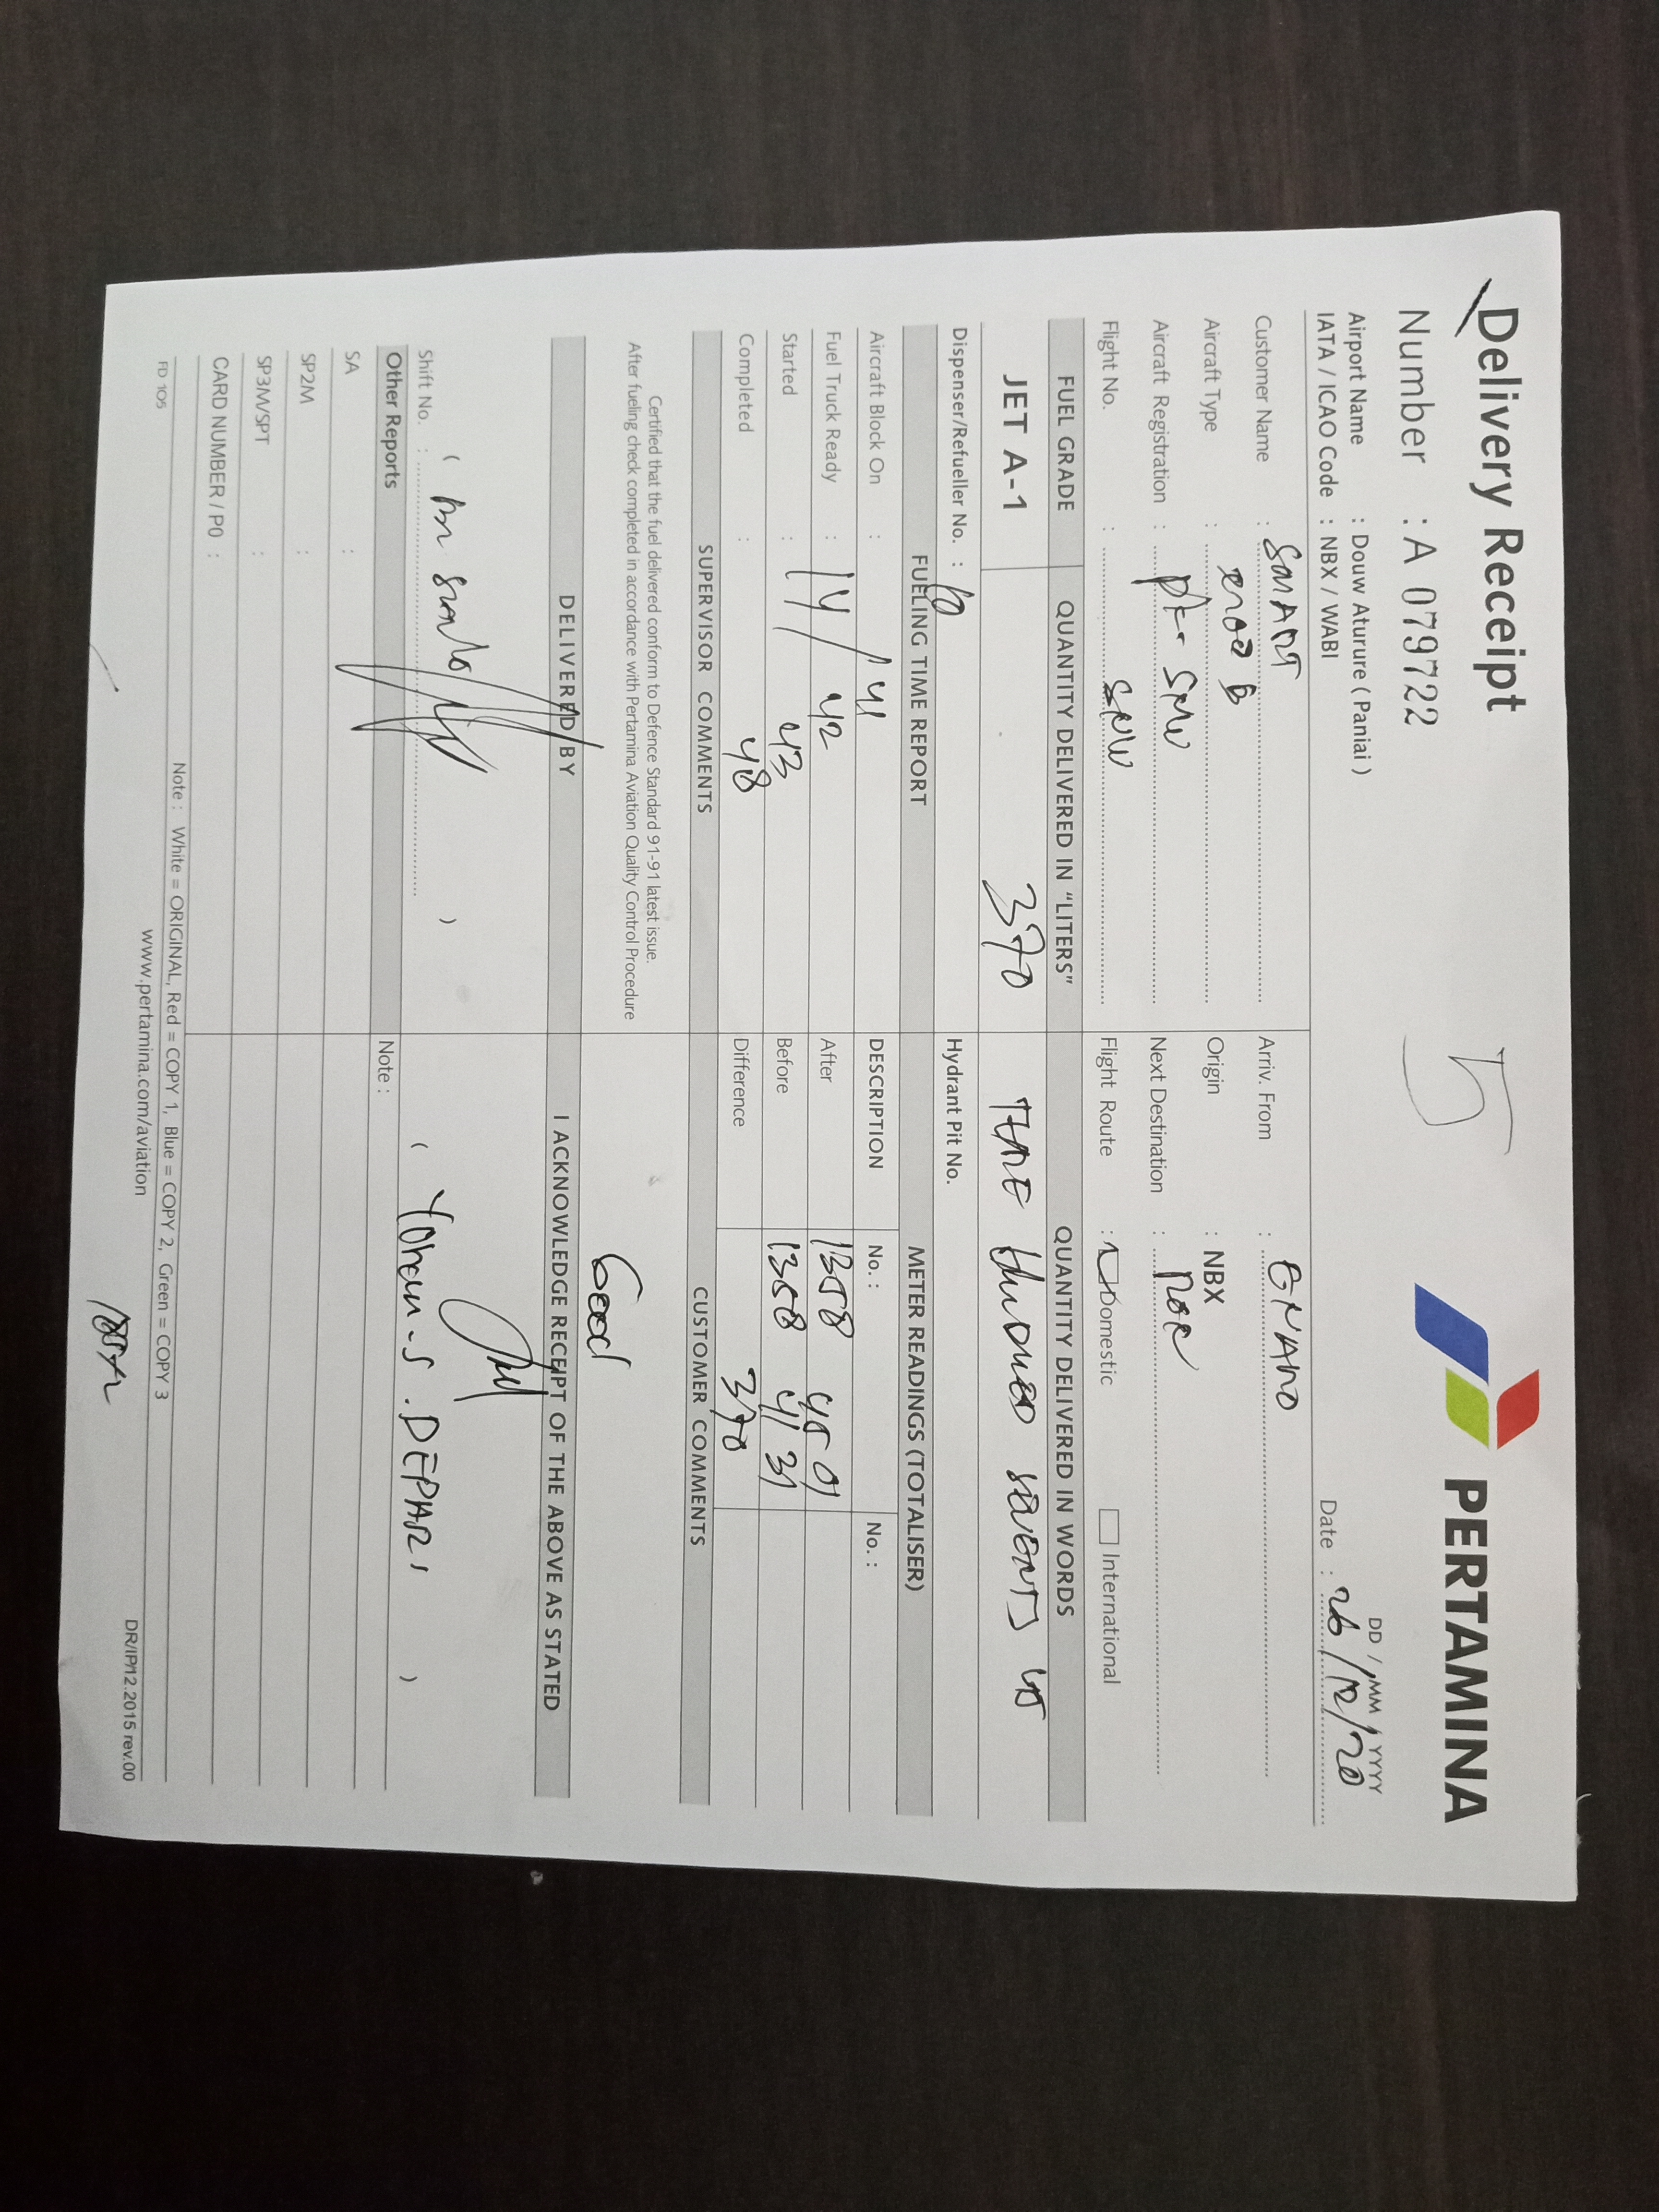 Delivery Receipt
PERTAMINA
Number : A 079722
5
DD / MM / YYYY
Airport Name : Douw Aturure ( Paniai )
IATA / ICAO Code : NBX / WABI
Date : 26/12/20
Customer Name : SMART
Arriv. From :
Aircraft Type :
Origin : NBX
Aircraft Registration : PK-
Next Destination :
Flight No. :
Flight Route : Domestic International
FUEL GRADE QUANTITY DELIVERED IN "LITERS" QUANTITY DELIVERED IN WORDS
JET A-1 370 Hundred
Dispenser/Refueller No. :
Hydrant Pit No.
FUELING TIME REPORT METER READINGS (TOTALISER)
Aircraft Block On : 41
DESCRIPTION No. : No. :
Fuel Truck Ready : 14/ 42
After 1358 4501
Started : 43
Before 1358 4131
Completed : 48
Difference 370
SUPERVISOR COMMENTS CUSTOMER COMMENTS
Certified that the fuel delivered conform to Defence Standard 91-91 latest issue.
After fueling check completed in accordance with Pertamina Aviation Quality Control Procedure
Good
DELIVERED BY I ACKNOWLEDGE RECEIPT OF THE ABOVE AS STATED
( )
( Yohan.S.DEPARI )
Shift No. :
Other Reports Note :
SA :
SP2M :
SP3M/SPT :
CARD NUMBER / PO :
Note : White = ORIGINAL, Red = COPY 1, Blue = COPY 2, Green = COPY 3
FD 105
www.pertamina.com/aviation
DR/IP/12.2015 rev.00